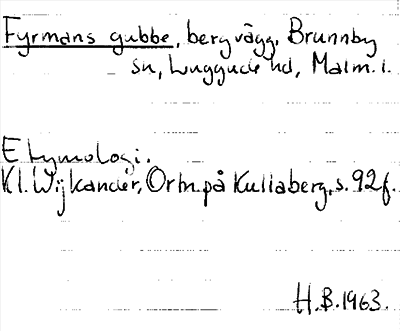 Fyrmans gubbe, bergvägg, Brunnby
sn, Luggude hd, Malm. l.
Etymologi.
Kl. Wijkander, Ortn. på Kullaberg, s. 92f.
H.B. 1963.